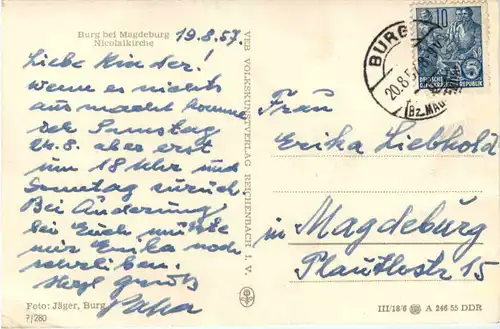 Burg bei Magdeburg
Nicolaikirche
19.8.57.
Liebe Kinder!
Wenn es nichts
ausmacht komme
ich Samstag
24.8. aber erst
um 18 Uhr und
Sonntag zurück.
Bei Änderung
bei Euch müßte
mir Erika noch
schreiben.
Herzl. Gruß
Papa
Foto: Jäger, Burg
7/280
VEB VOLKSKUNSTVERLAG REICHENBACH I. V.
10
DEUTSCHE DEMOKRATISCHE REPUBLIK
BURG
20.8.57
(Bz. MAGDEBURG)
Frau
Erika Liebhold
in Magdeburg
Plauthstr 15
III/18/6 A 246 55 DDR